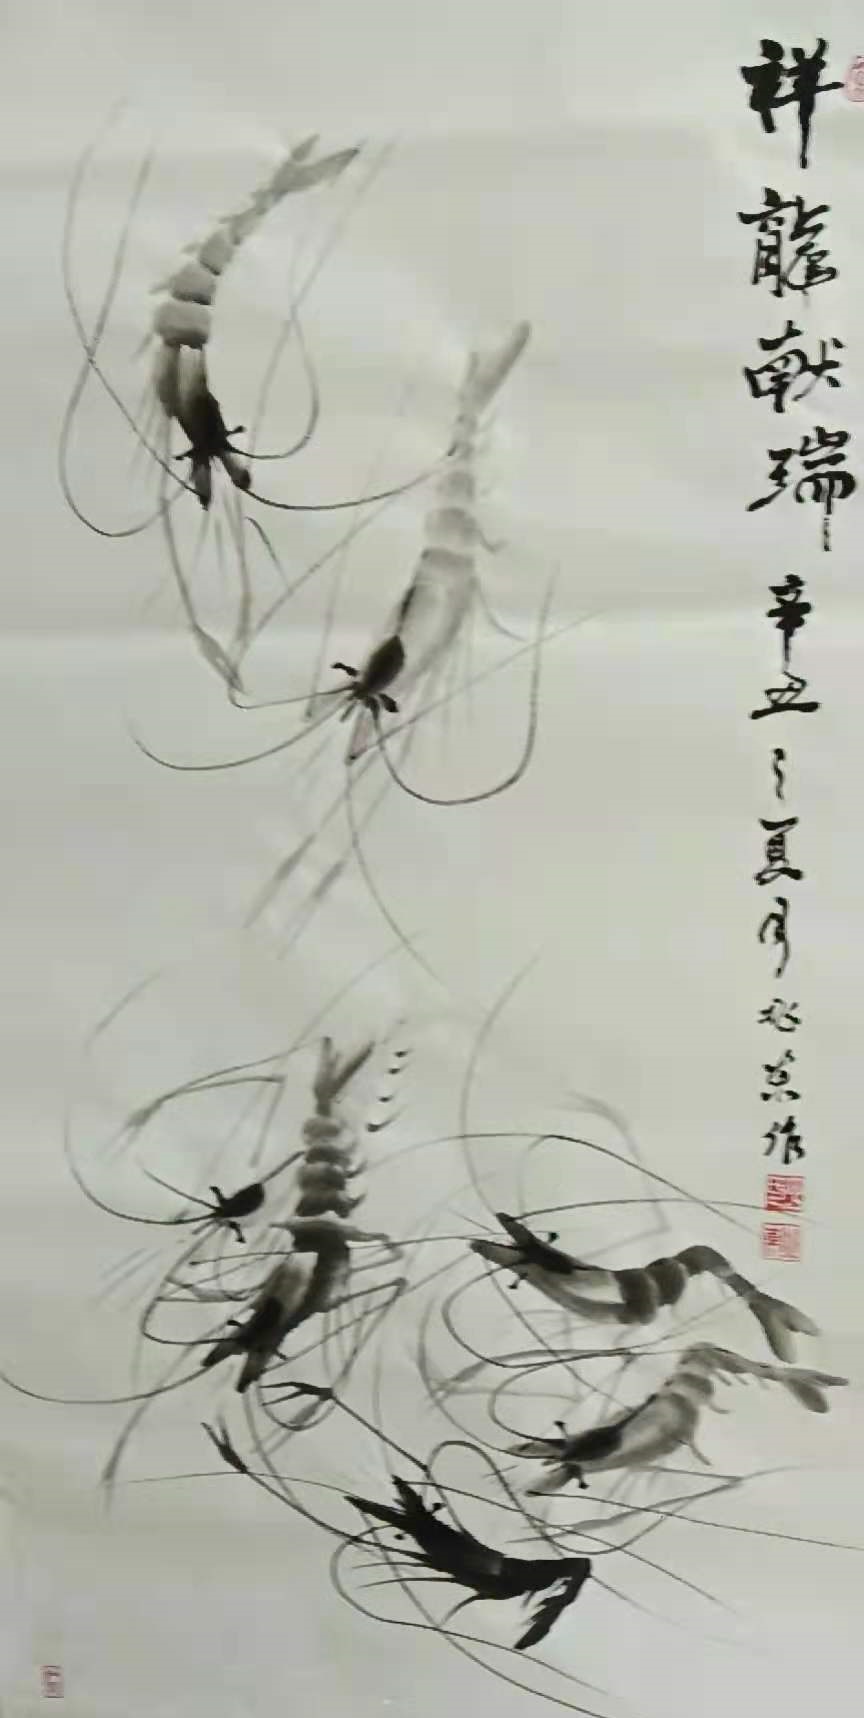 祥龍献瑞 辛丑之夏月
作